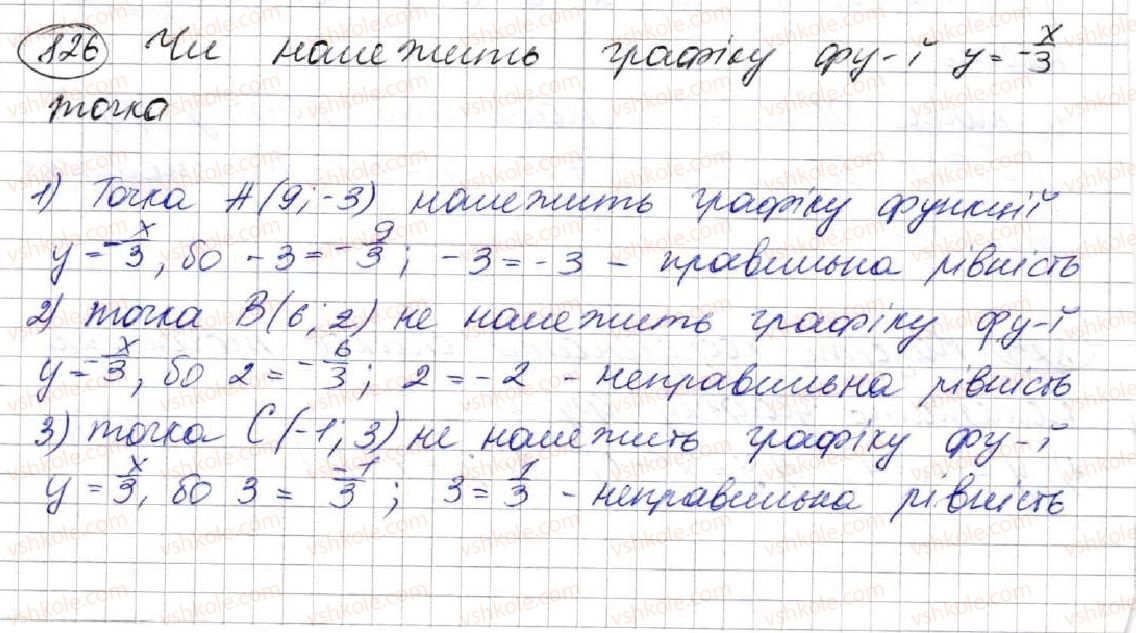 826 Чи належить графіку фу-ї y = -x/3
точка
1) Точка A(9; -3) належить графіку функції
y = -x/3, бо -3 = -9/3; -3 = -3 - правильна рівність
2) точка B(6; 2) не належить графіку фу-ї
y = -x/3, бо 2 = -6/3; 2 = -2 - неправильна рівність
3) точка C(-1; 3) не належить графіку фу-ї
y = x/3, бо 3 = -1/3; 3 = 1/3 - неправильна рівність
vshkole.com